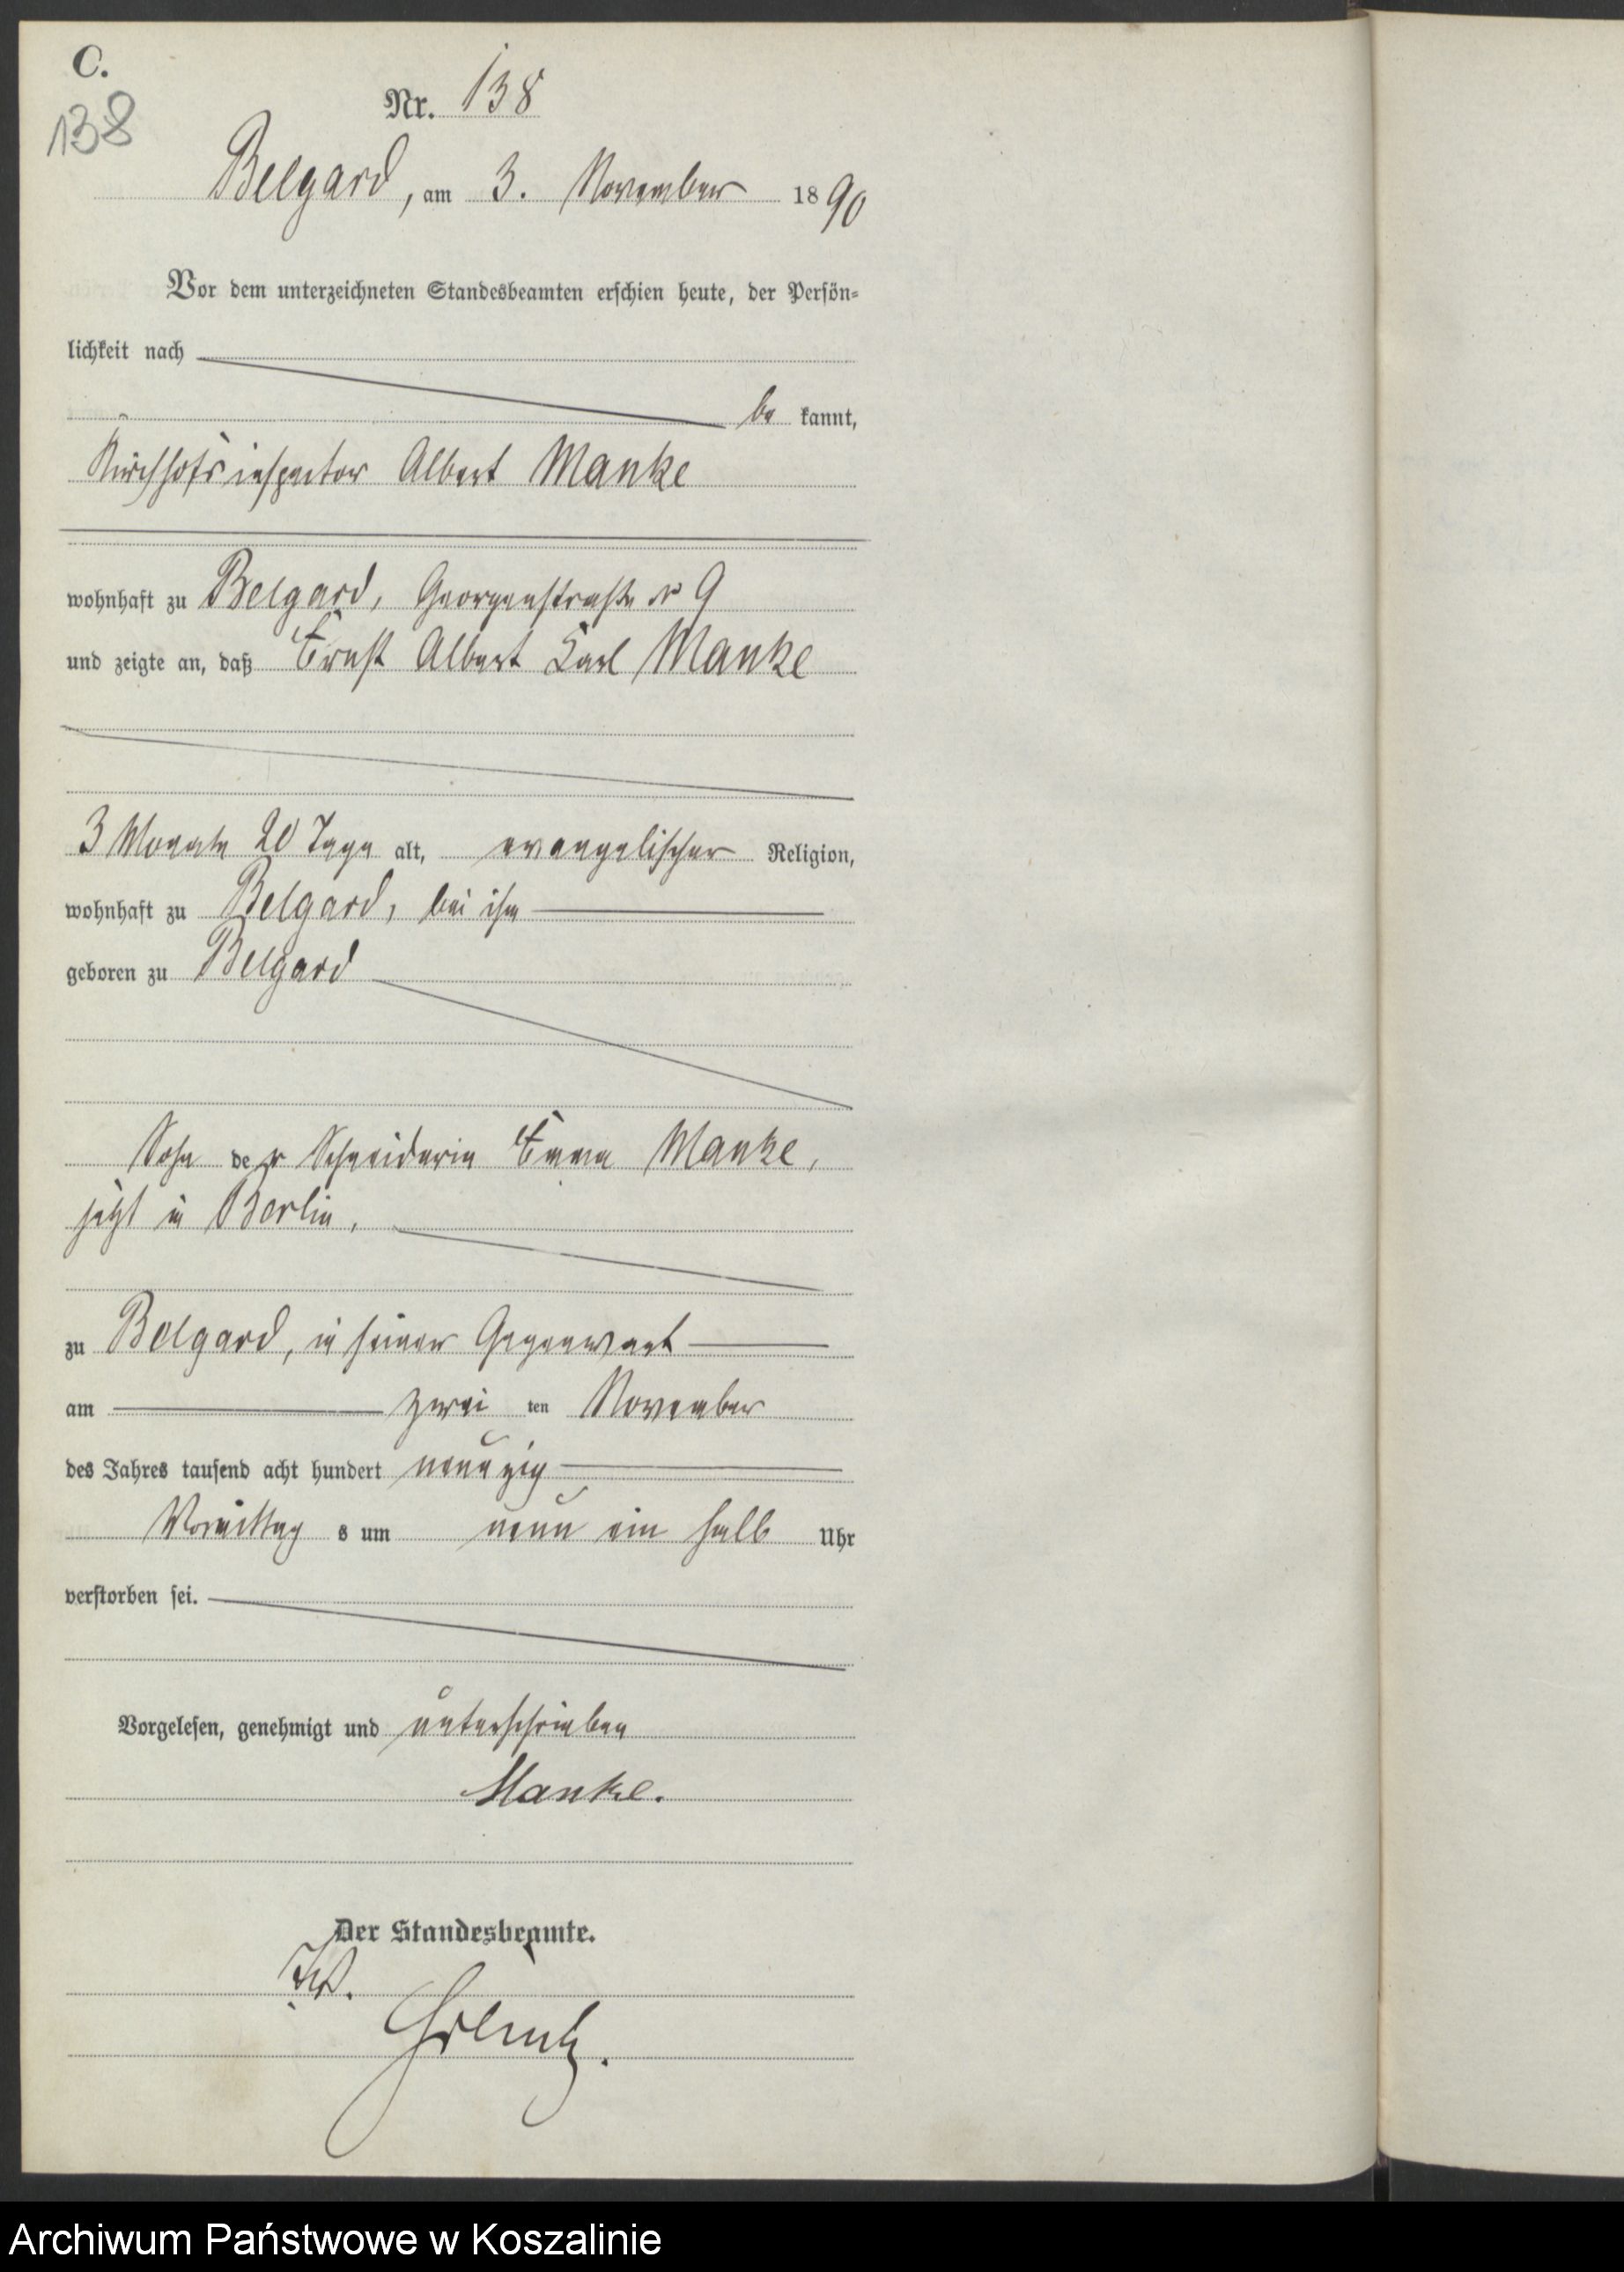 C.
Nr. 138
138
Belgard, am 3. November 1890
Vor dem unterzeichneten Standesbeamten erschien heute, der Persön-
lichkeit nach
be kannt,
Kirchhofsinspector Albert Manke
wohnhaft zu Belgard, Georgenstraße № 9
und zeigte an, daß Ernst Albert Karl Manke
3 Monate 20 Tage alt, evangelischer Religion,
wohnhaft zu Belgard, bei ihm
geboren zu Belgard
Sohn der Schneiderin Emma Manke,
jetzt in Berlin,
zu Belgard, in seiner Gegenwart
am zwei ten November
des Jahres tausend acht hundert neunzig
Vormittag s um neun ein halb Uhr
verstorben sei.
Vorgelesen, genehmigt und unterschrieben
Manke.
Der Standesbeamte.
Archiwum Państwowe w Koszalinie